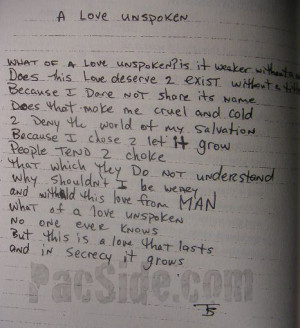 A LOVE UNSPOKEN
WHAT OF A LOVE UNSPOKEN? is it weaker without a
Does this Love deserve 2 exist without a
Because I Dare NOT share its name
Does that make me cruel and cold
2 Deny the world of my salvation
Because I chose 2 let it grow
People TEND 2 choke
that which they DO NOT understand
Why shouldn't I be weary
and withhold this love from MAN
what of a love unspoken
no one ever knows
But this is a love that lasts
and in secrecy it grows
PacSide.com